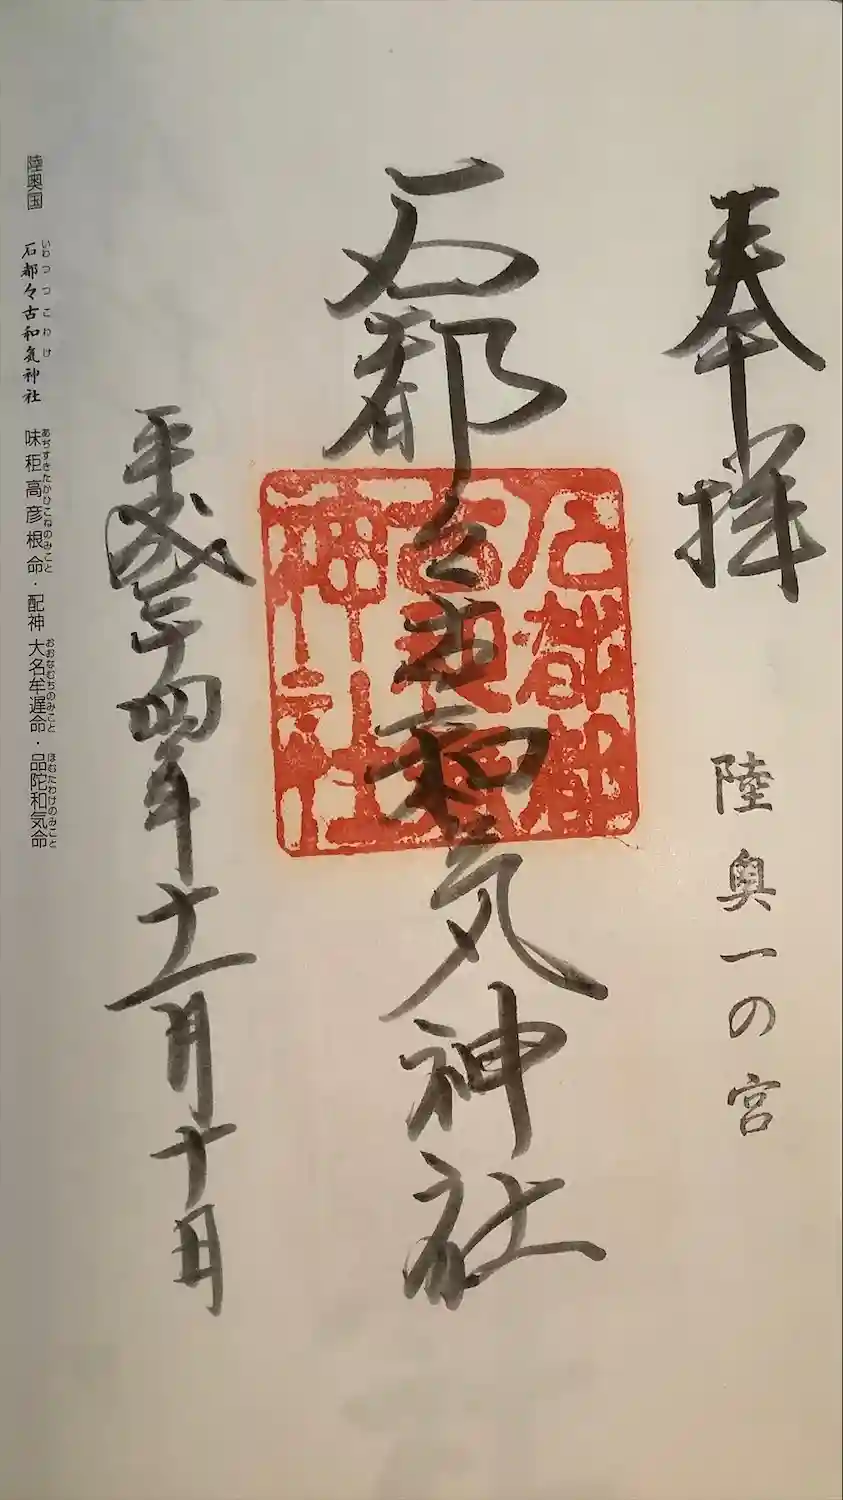 奉拝 陸奥一の宮
石都々古和気神社
石都都
古和気
神社
平成二十四年十一月十日
陸奥国 石都々古和気神社 味秬高彦根命・配神 大名牟遅命・品陀和気命
いわつつこわけ あぢすきたかひこねのみこと おおなむちのみこと ほむたわけのみこと